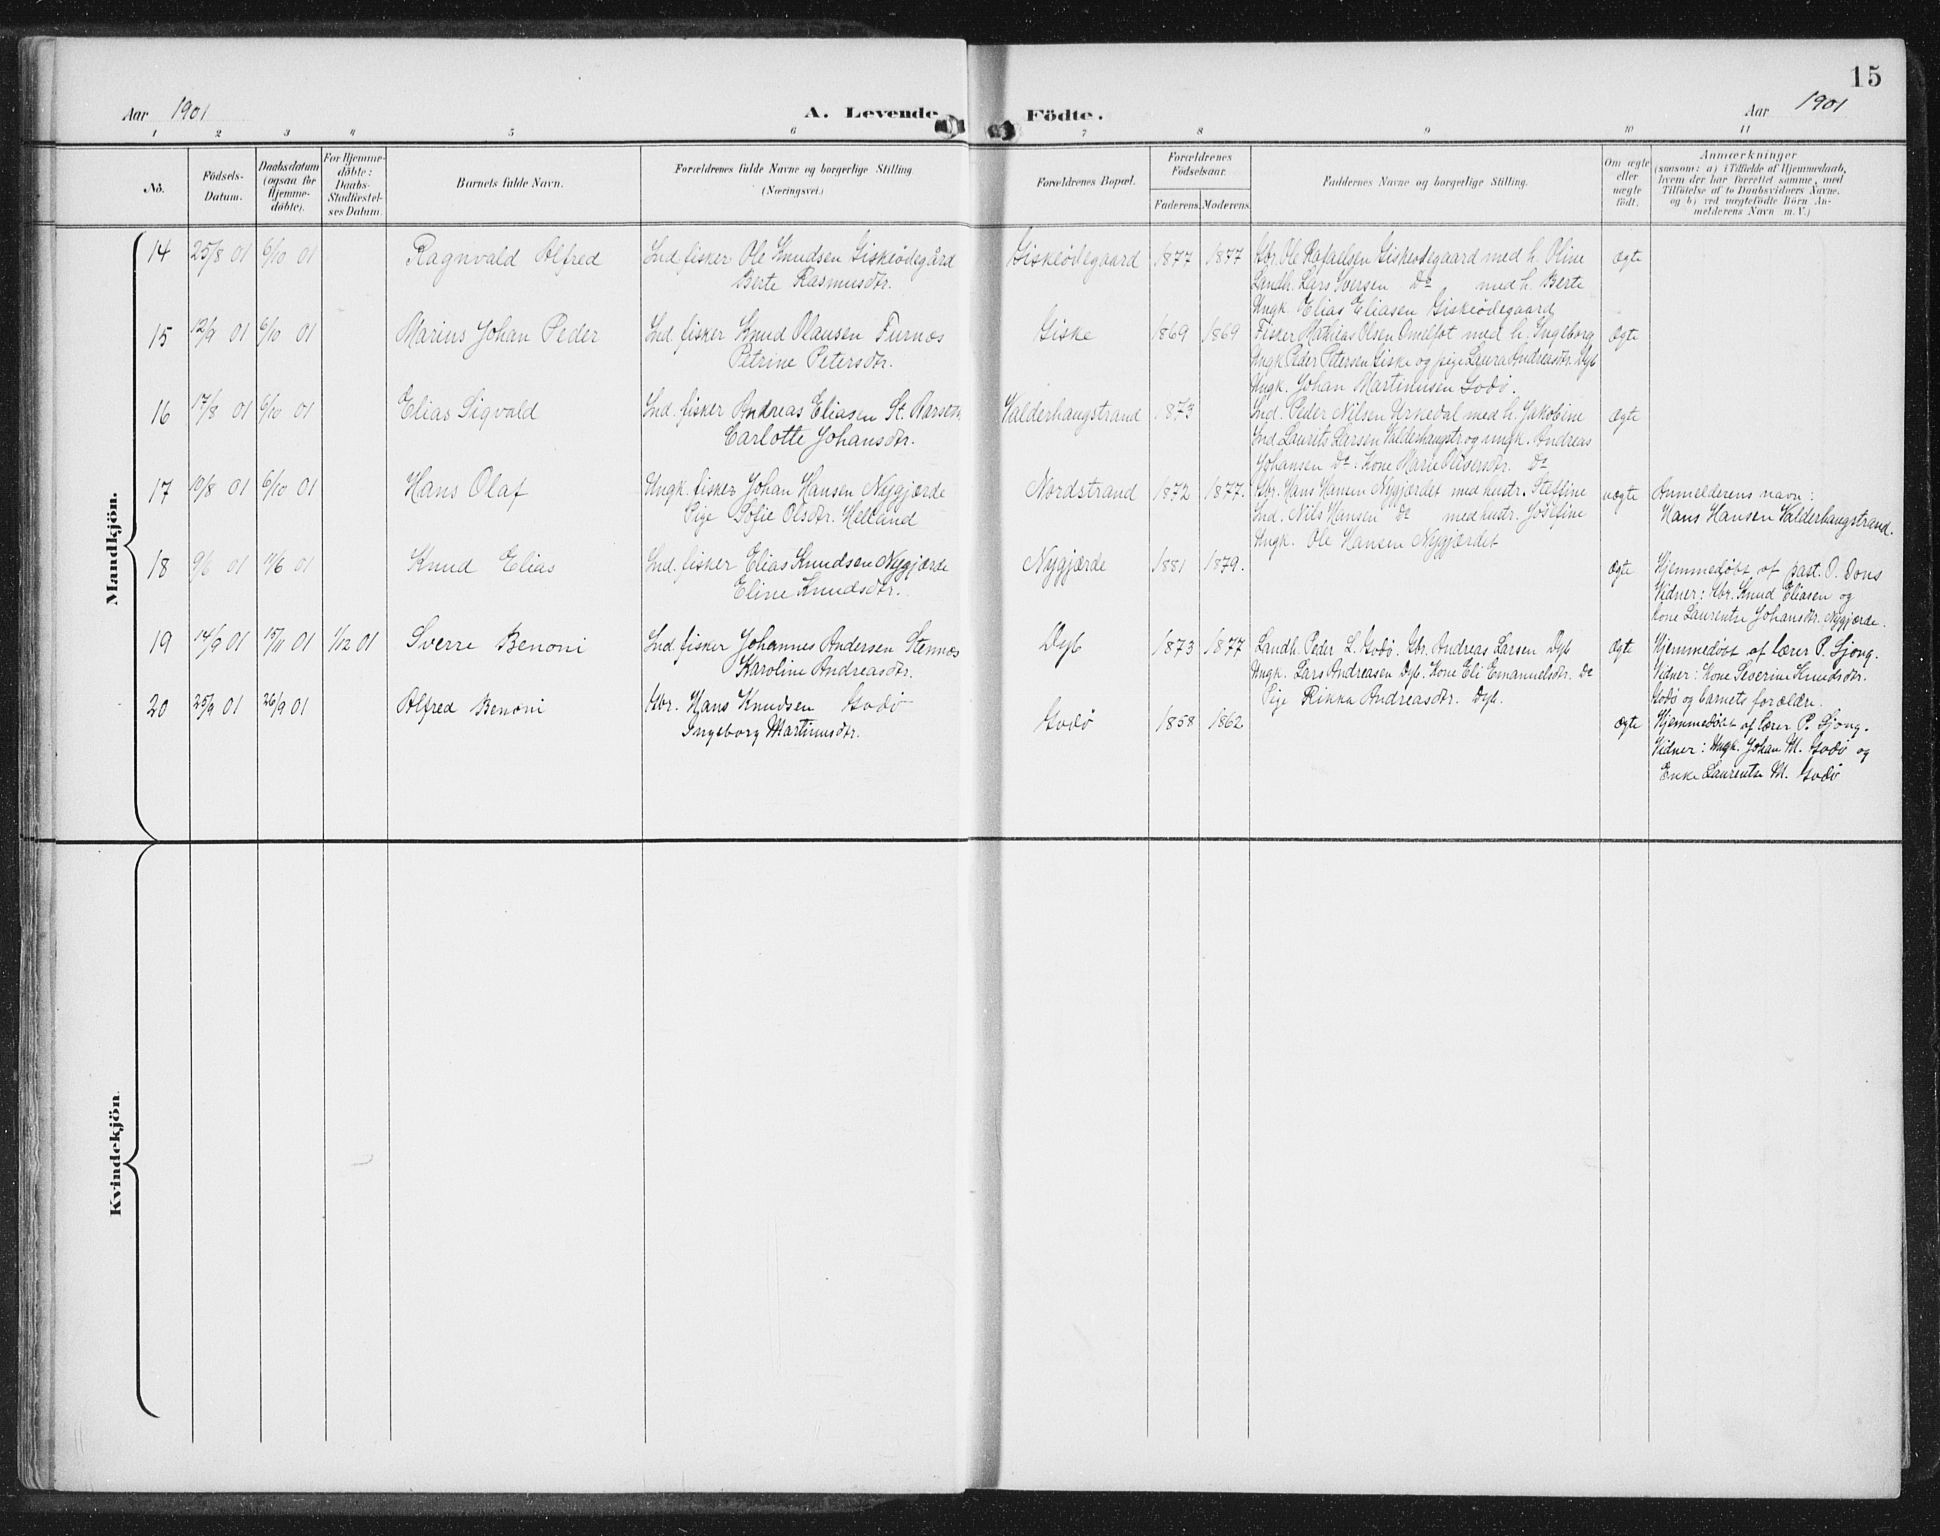 15
Aar 1901 A. Levende Födte. Aar 1901
1 2 3 4 5 6 7 8 9 10 11
No. Födsels-Datum. Daabsdatum (ogsaa for Hjemme-döbte). For Hjemme-döbte: Daabs-Stadfæstel-ses Datum. Barnets fulde Navn. Forældrenes fulde Navne og borgerlige Stilling (Næringsvei.) Forældrenes Bopæl. Forældrenes Födselsaar. Faderens. Moderens. Faddernes Navne og borgerlige Stilling. Om ægte eller uægte födt. Anmærkninger (saasom: a) i Tilfælde af Hjemmedaab, hvem der har forrettet samme, med Tilföielse af to Daabsvidners Navne, og b) ved uægtefödte Börn An-melderens Navn m. V.)
Mandkjön.
14 25/8 01 6/10 01 Ragnvald Alfred Ind. fisker Ole Knudsen Giskeødegård Giskeødegaard 1877 1877 Gbr. Ole Rafaelsen Giskeødegaard med h. Oline ægte
Berte Rasmusdtr. Landh. Lars Iversen Do med h. Berte
Ungk. Elias Eliasen Giskeødegaard
15 12/9 01 6/10 01 Marius Johan Peder Ind. fisker Knud Olausen Furnes Giske 1869 1869 Fisker Mathias Olsen med h. Ingeborg ægte
Petrine Petersdtr. Ungk. Peder Petersen Giske og pige Laura Andreasdtr. Dyb
Ungk. Johan Martinusen Godø.
16 17/8 01 6/10 01 Elias Sigvald Ind. fisker Andreas Eliasen St. Valderhaugstrand 1873 Ind. Peder Nilsen Urkedal med h. Jakobine ægte
Carlotte Johansdtr. Ind. Laurits Larsen Valderhaugstr. og ungk. Andreas
Johansen Do. Kone Marie Oliversdtr. Do
17 10/8 01 6/10 01 Hans Olaf Ungk. fisker Johan Hansen Nygjærde Nordstrand 1872 1877. Gbr. Hans Hansen Nygjærdet med hustr. Steffine uægte Anmelderens navn:
Pige Sofie Olsdtr. Helland Ind. Nils Hansen Do med hustr. Josefine Hans Hansen Valderhaugstrand.
Ungk. Ole Hansen Nygjærdet
18 9/6 01 11/6 01 Knud Elias Ind. fisker Elias Knudsen Nygjærde Nygjærde 1881 1879. ægte Hjemmedøbt af past. O. Dons
Eline Knudsdtr. Vidner: Gbr. Knud Eliasen og
kone Laurentse Johansdtr. Nygjærde.
19 14/9 01 15/11 01 1/12 01 Sverre Benoni Ind. fisker Johannes Andersen Stennes Dyb 1873 1877 Landh. Peder L. Godø. Gbr. Andreas Larsen Dyb ægte Hjemmedøbt af lærer P. Gjong.
Karoline Andreasdtr. Ungk. Lars Andreasen Dyb. Kone Eli Emanuelsdtr. Do Vidner: Kone Severine Knudsdtr.
Pige Rikka Andreasdtr. Dyb. Godø og barnets forældre.
20 25/9 01 26/9 01 Alfred Benoni Gbr. Hans Knudsen Godø Godø 1858 1862 ægte Hjemmedøbt af lærer P. Gjong.
Ingeborg Martinusdtr. Vidner: Ungk. Johan M. Godø og
Enke Laurentse M. Godø
Kvindekjön.